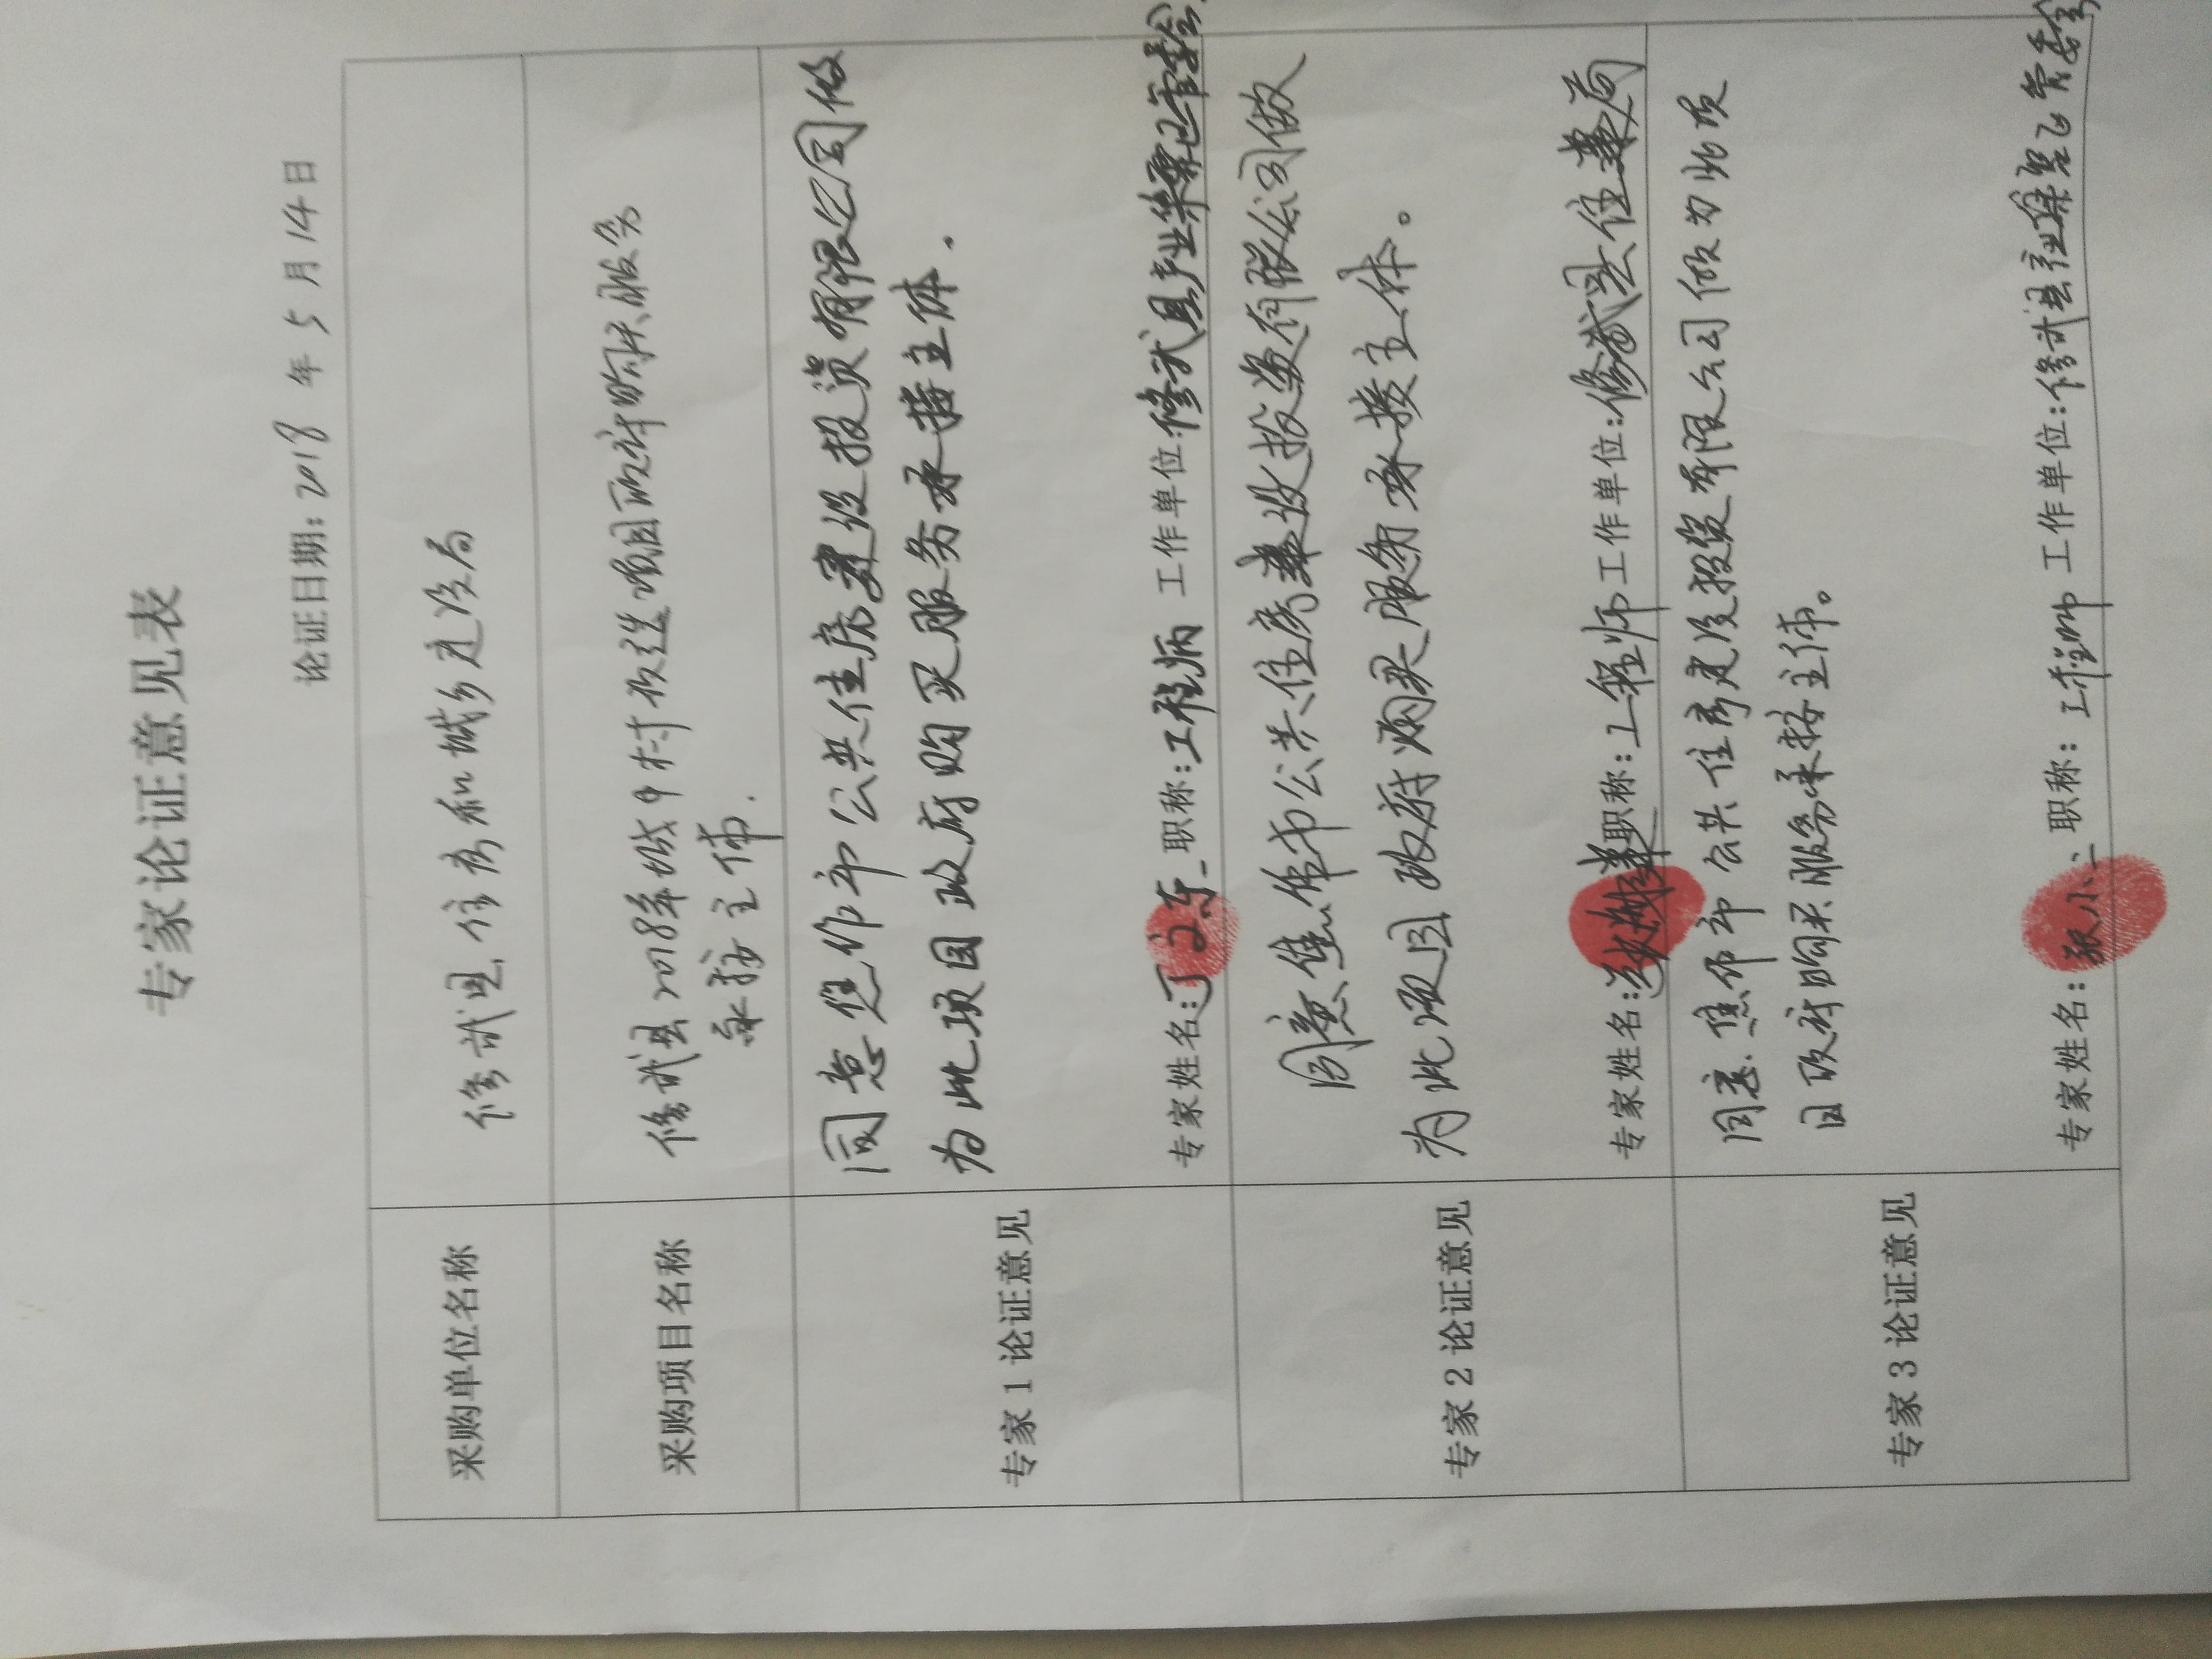 专家论证意见表
论证日期：2018 年 5 月 14 日
采购单位名称
修武县住房和城乡建设局
采购项目名称
修武县2018年城中村改造项目政府购买服务
承接主体.
专家 1 论证意见
同意焦作市公共住房建设投资有限公司做
为此项目政府购买服务承接主体.
专家姓名: 职称:工程师 工作单位:修武县产业集聚区管
专家 2 论证意见
同意焦作市公共住房建设投资有限公司做
为此项目政府购买服务承接主体。
专家姓名: 职称:工程师 工作单位:修武县住建局
专家 3 论证意见
同意焦作市公共住房建设投资有限公司做为此项
目政府购买服务承接主体。
专家姓名:张小 职称:工程师 工作单位:修武县产业集聚区管委会